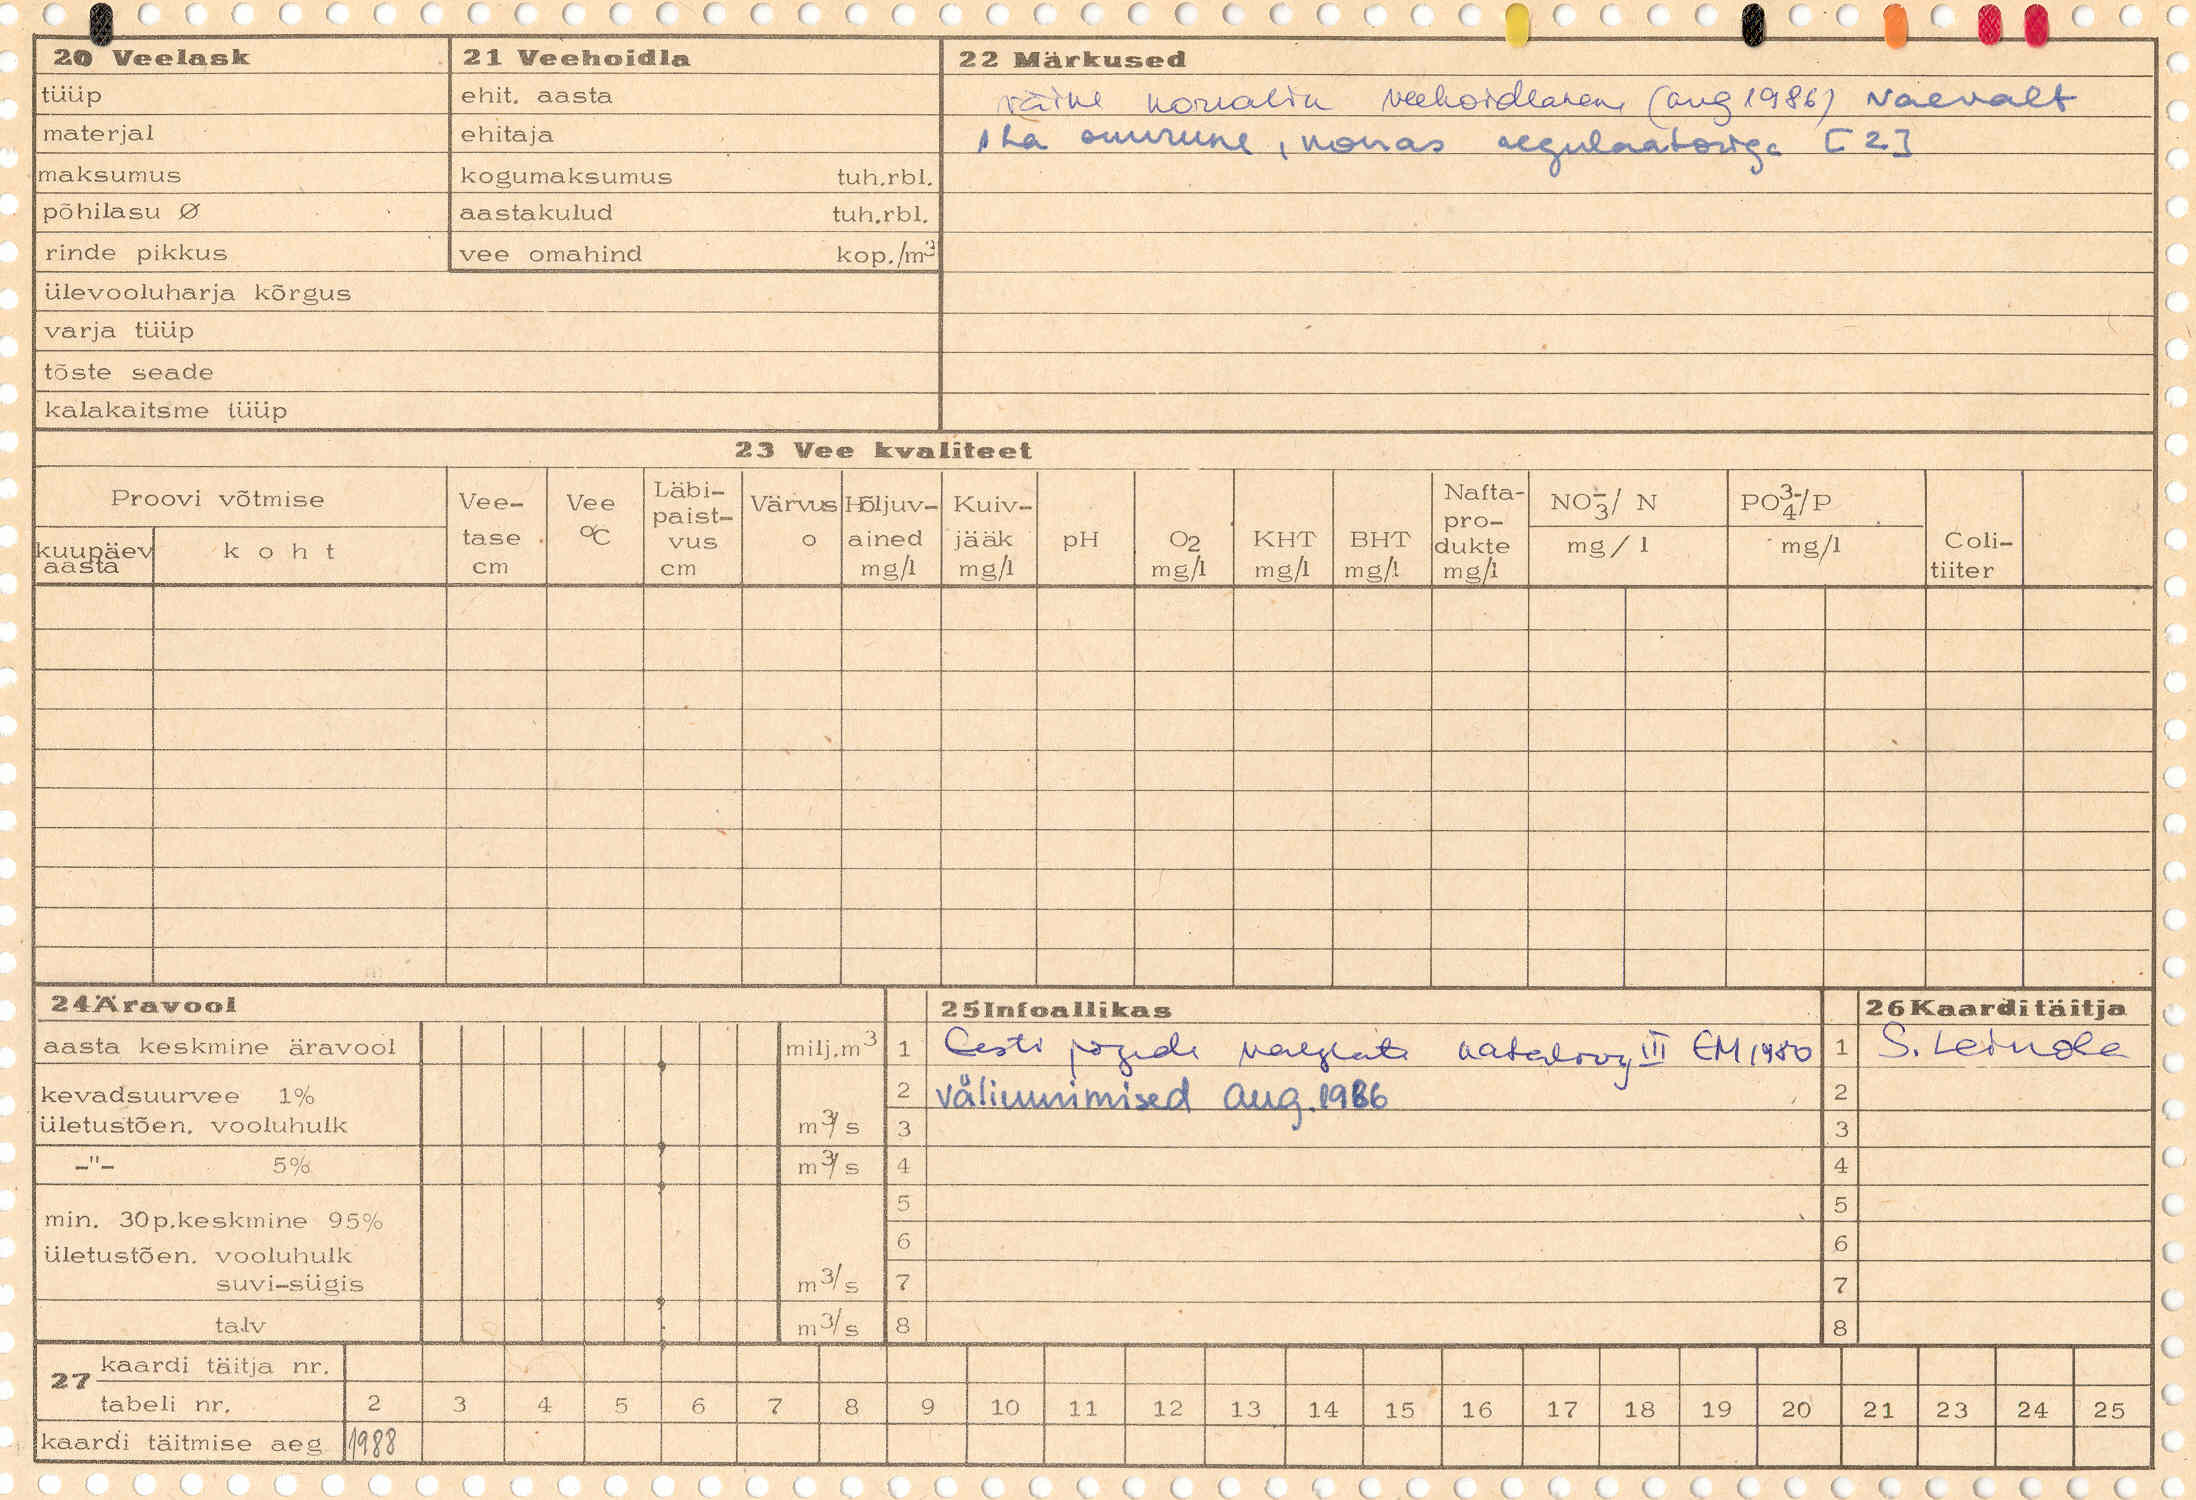 20 Veelask
tüüp
materjal
maksumus
põhilasu Ø
rinde pikkus
ülevooluharja kõrgus
varja tüüp
tõste seade
kalakaitsme tüüp
21 Veehoidla
ehit. aasta
ehitaja
kogumaksumus tuh.rbl.
aastakulud tuh.rbl.
vee omahind kop./m³
22 Märkused
väike korralik veehoidlakene (aug 1986) vaevalt
1 ha suurune, korras regulaatoriga [2]
23 Vee kvaliteet
Proovi võtmise
kuupäev aasta
koht
Vee-
tase
cm
Vee
°C
Läbi-
paist-
vus
cm
Värvus
o
Hõljuv-
ained
mg/l
Kuiv-
jääk
mg/l
pH
O2
mg/l
KHT
mg/l
BHT
mg/l
Nafta-
pro-
dukte
mg/l
NO₃⁻/ N
mg / l
PO₄³⁻/P
mg/l
Coli-
tiiter
24 Äravool
aasta keskmine äravool milj.m³
kevadsuurvee 1%
ületustõen. vooluhulk m³/s
-"- 5% m³/s
min. 30p.keskmine 95%
ületustõen. vooluhulk
suvi-sügis m³/s
talv m³/s
25 Infoallikas
1 Eesti jõgede valglate kataloog III EM 1980
2 väliuurimised aug. 1986
3
4
5
6
7
8
26 Kaardi täitja
1 S. Leinola
2
3
4
5
6
7
8
27 kaardi täitja nr.
tabeli nr. 2 3 4 5 6 7 8 9 10 11 12 13 14 15 16 17 18 19 20 21 23 24 25
kaardi täitmise aeg 1988